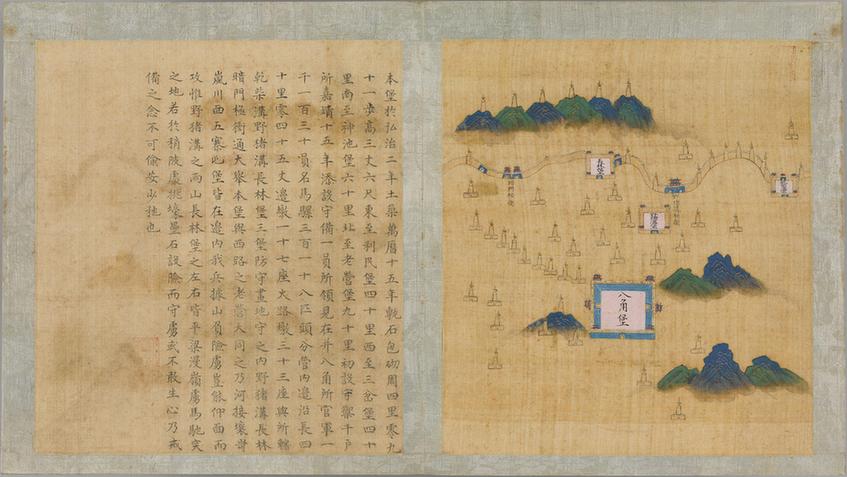 本堡於弘治二年土築萬曆十五年甎石包砌周四里零九
十一步高三丈六尺東至利民堡四十里西至三岔堡四十
里南至神池堡六十里北至老營堡九十里初設守禦千戶
所嘉靖十五年添設守備一員所領見在并八角所官軍一
千一百三十員名馬騾三百一十八匹頭分管內邊沿長四
十里零四十五丈邊墩一十七座火路墩三十三座與所轄
乾柴溝野猪溝長林堡三堡防守畫地守之內野猪溝長林
暗門極衝通大舉本堡與西路之老營大同之乃河接壤
嵐川西五寨
堡皆在邊內我兵據山負險虜豈能仰面而
攻惟野猪溝之西山長林堡之左右皆平梁漫嶺虜馬馳突
之地若於稍陂處挑壕壘石設險而守虜或不敢生心乃戒
備之念不可偷安少拖也
長林堡
八角堡